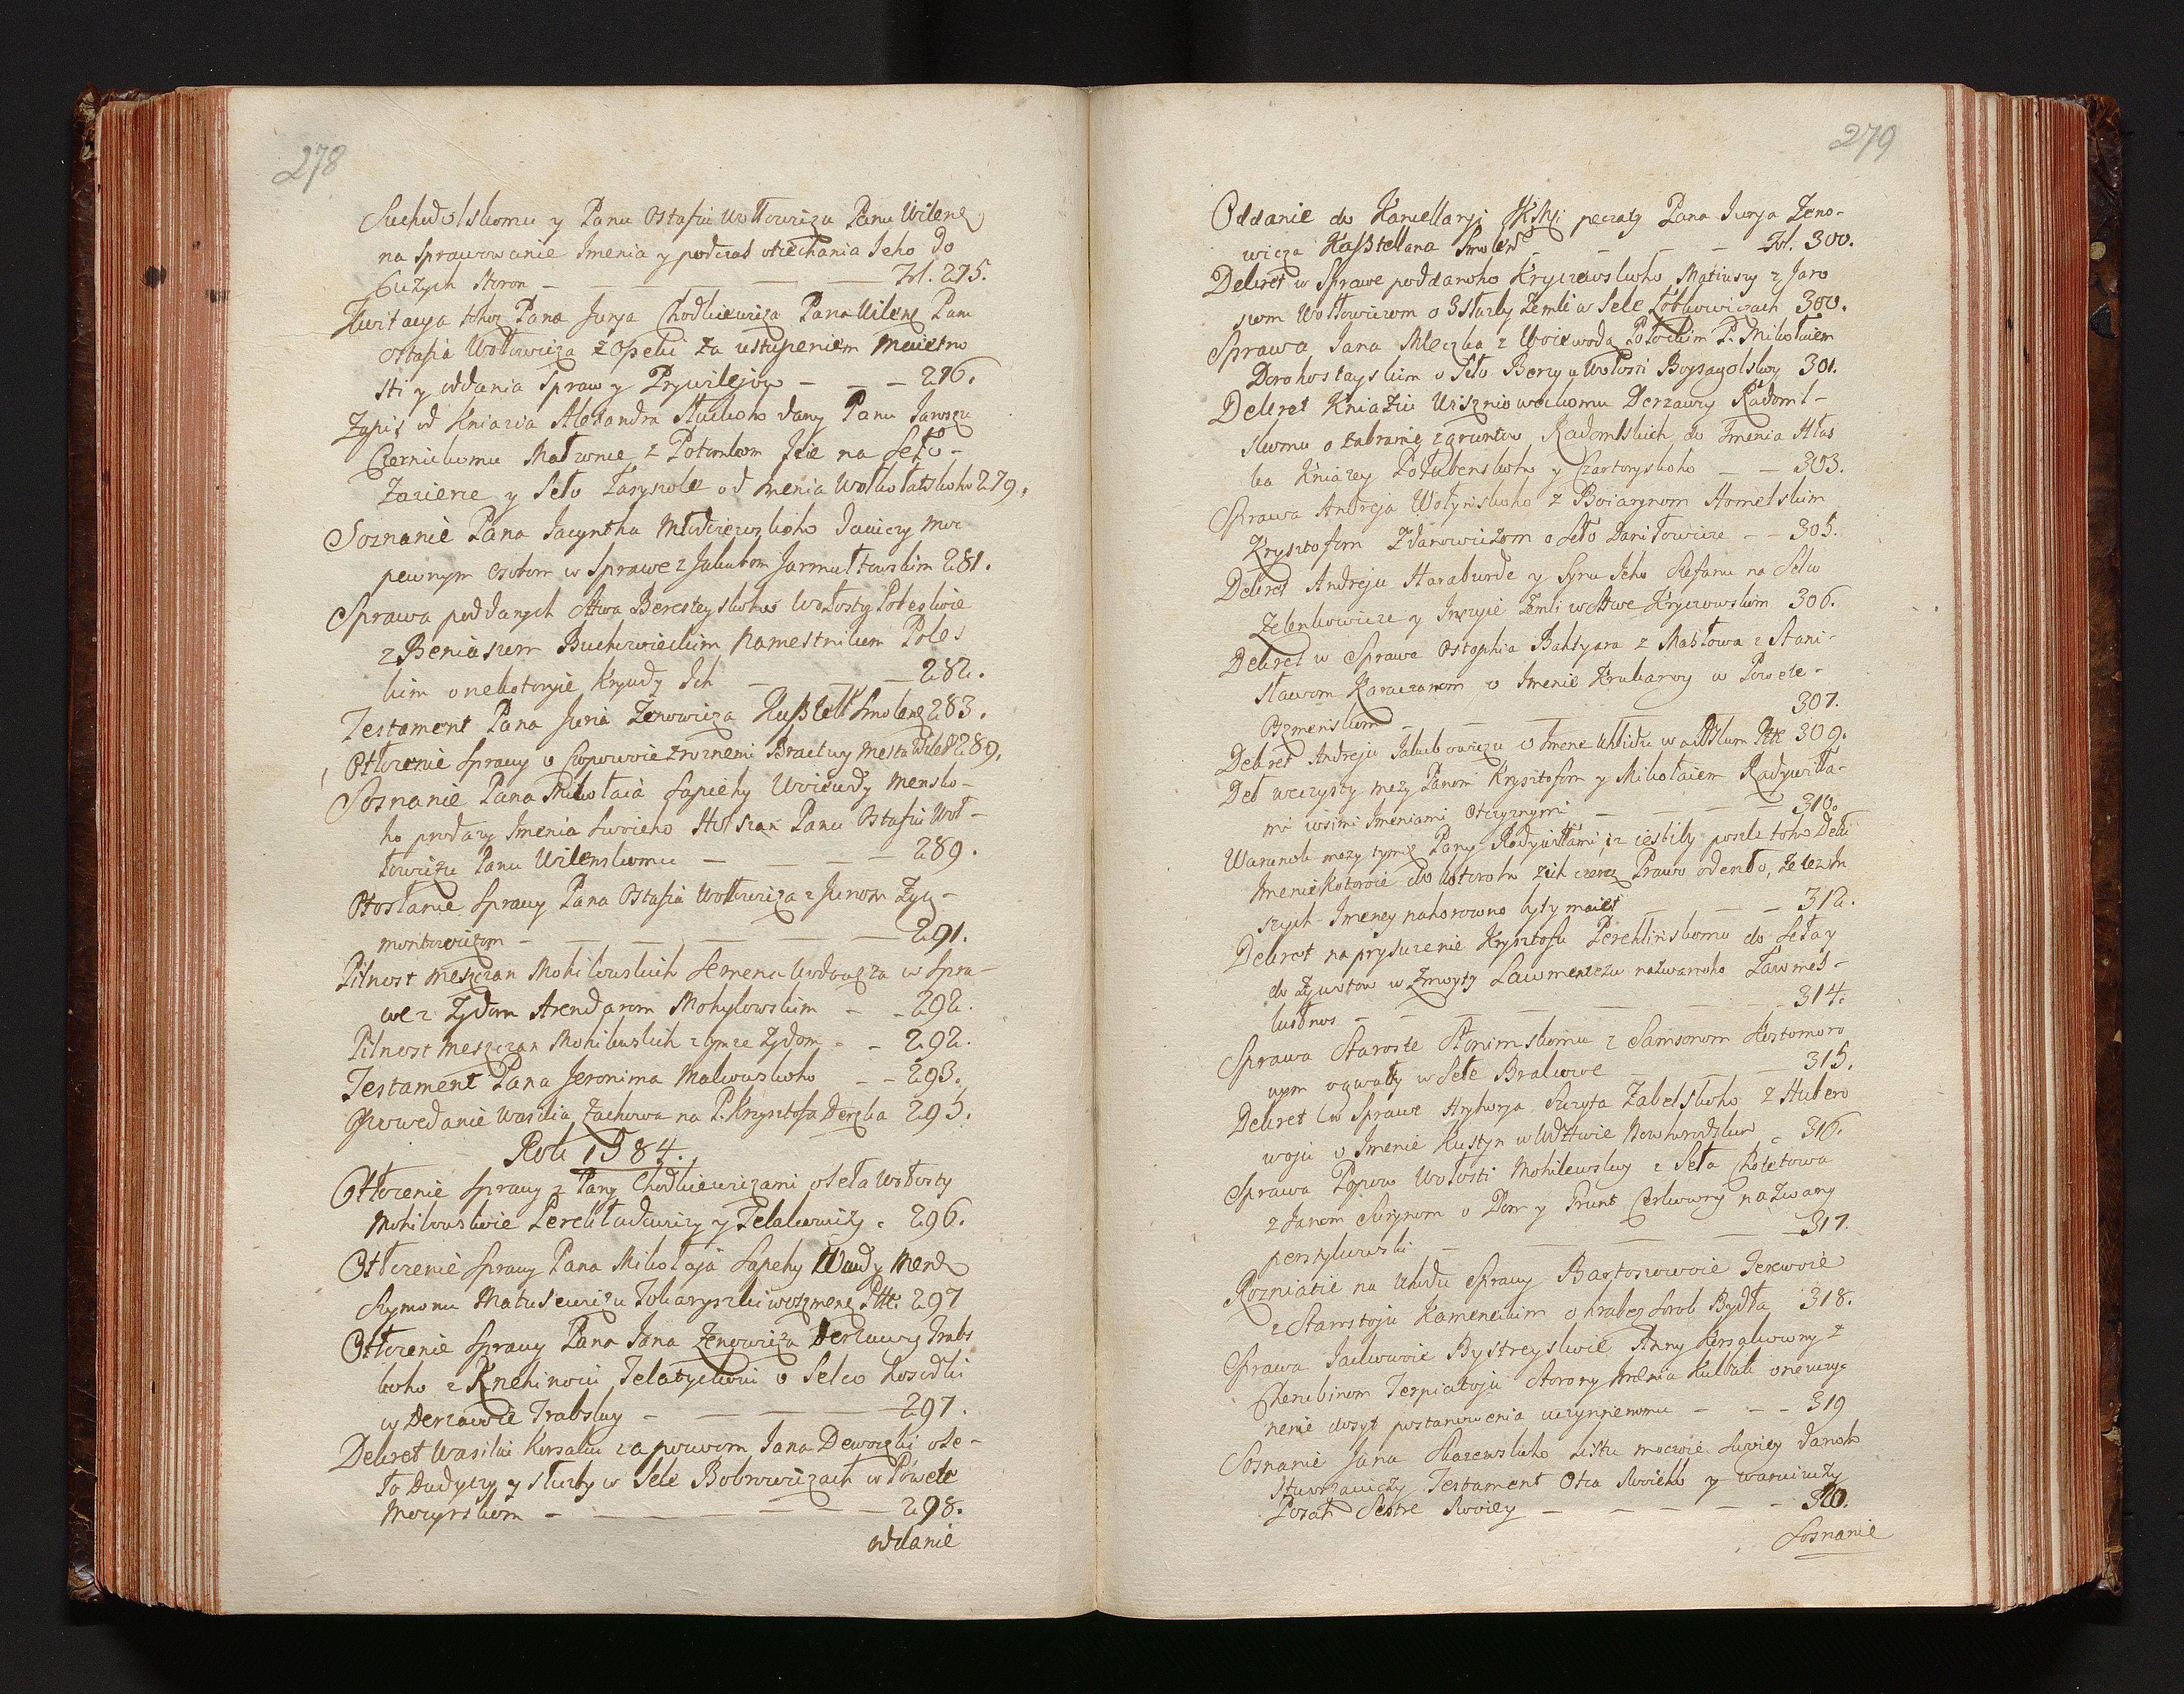 278
Suchodolskomu y Panu Ostafiu Wołłowiczu Panu Wilenę
na Sprawowanie Imenia y podczas otiechania Jeho do
Cużych Storon — — — — Fol. 275.
Kwitacya tohoż Pana Jurja Chodkiewicza Pana Wilenę Panu
Ostafia Wołłowicza z Opeki za ustupeniem Maietno
sti y oddania Spraw y Prywilejow — — — 276.
Zapis od Kniazia Alexandra Słuckoho dany Panu Jaroszu
Czernickomu Małżonce z Potomkom Jeie na Seło
Zazierie y Seło Taryszole od Imenia Wołkołatskoho 279.
Soznanie Pana Jacyntha Młodziewskoho dauiczy moc
pewnym Osobom w Sprawe z Jakubom Jarmułtowskim 281.
Sprawa poddanych Sttwa Beresteyskoho Wołosty Poleskoie
z Beniaszem Buchowieckim Namestnikem Poles
kim o nekotoryie Krywdy Ich — — — 282.
Testament Pana Juria Zenowicza Kasztell Smolenę 283.
Otłożenie Sprawy o Czopowoie z roznemi Bractwy mesta Wilę 289.
Soznanie Pana Mikołaia Sapiehy Woiewody Mensko-
ho prodaży Imenia Swoieho Holszan Panu Ostafiu Woł-
łowiczu Panu Wilenskomu — — — — 289.
Otosłanie Sprawy Pana Ostafia Wołłowicza z Junom Zyg-
montowiczom — — — — — 291.
Pilnost meszczan Mohilowskich Semena Wodowęza w Spra-
we z Żydom Arendarom Mohylowskim — — 292.
Pilnost meszczan Mohilewskich z tymże Żydom — — 292.
Testament Pana Jeronima Makowskoho — — 293.
Opowedanie Wasilia Zachowa na P. Krzysztofa Derszka 295.
Roku 1584.
Otłożenie Sprawy z Pany Chodkiewiczami o Seła Wołosty
Mohilowskoie Perekładowiczy y Pelakowiczy — 296.
Otłożenie Sprawy Pana Mikołaja Sapehy Wwdy Mensk
Szymonu Matusewiczu Tokaryszki w Oszmenę Ptte. 297
Otłożenie Sprawy Pana Jana Zenowicza Derżawcy Trabs
koho z Knehinoiu Jelatyckoiu o Selco Łosodki
w Derżawie Trabskoy — — — — 297.
Dekret Wasiliu Korsaku za pozwom Jana Dewoczki o Se-
ło Dudycy y Służby w Sele Bobrowiczach w Powete
Mozyrskom — — — — — 298.
oddanie
279
Oddanie do Kancellaryi JKMsci peczaty Pana Jurja Zeno-
wicza Kasztellana Smolen — — — — Fol. 300.
Dekret w Sprawe poddanoho Kryczewskoho Matiuszy z Jaro
szem Wołłowiczom o 3 Służby Zemli w Sele Łobkowiczach 300.
Sprawa Jana Mleczka z Woiewodą Połockim P. Mikołaiem
Dorohostayskim o Seło Berży u Wołosti Boysagolskoy 301.
Dekret Kniaziu Wiszniowieckomu Derżawcy Radoml-
skomu o zabranie z gruntow Radomlskich do Imenia Hłus
ka Kniażey Połubenskoho y Czartoryskoho — — 303.
Sprawa Andreja Wołynskoho z Boiarynom Homelskim
Krysztofom Zdanowiczom o Seło Daniłowicze — — 305.
Dekret Andreju Haraburde y Synu Jeho Stefanu na Selo
Zelenkowicze y Inszyie Zemli w Sttwe Kryczowskim 306.
Dekret w Sprawe Ostaphia Baksyara z Masłowa z Stani-
sławom Karaczanom o Imenie Krukarwy w Powete
Oszmenskom — — — — — 307.
Dekret Andreju Jakubowiczu o Imene Ukłidu w Ptte 309.
Deł weczysty meży Panom Krysztofom y Mikołaiem Radywiłła-
mi wsimi Imeniami Otczyznymi — — — — 310.
Warunok meży tymiż Pany Radywiłłami, iż iestliby posle toho Dełu
Imenie kotoroie do kotoroho z ich czerez Prawo odeszło, że z in
szych Imeney nahorożono byty maiet — — — 312.
Dekret na prysuzenie Krysztofu Perekhlinskomu do Seła y
do Żywotow w Żmoyty Ławmenczu nazwanoho Ławmes-
kudnos — — — — — — 314.
Sprawa Staroste Słonimskomu z Samsonom Kostomoro
wym o gwałty w Sele Brakowe — — — 315.
Dekret w Sprawe Hryhorja Szczyta Zabelskoho z Hubero
woju o Imenie Kustyn w Wdztwie Nowhorodskom — 316.
Sprawa Popow Wołosti Mohilewskoy z Seła Choletowa
z Janom Skrypnom o Dom y Grunt Cerkowny nazwany
perstylewski — — — — — 317.
Rozniatie na Uhodu Sprawy Bartoszowoie Jerewoie
z Starostoju Kamenickim o hrabeż Sorok Bydła 318.
Sprawa Jackowoie Bystreyskoie Anny Korsakowny z
Cherubinom Terpiatoju Storony Imenia Kulbak o neuczy-
nenie dosyt postanowienia uczynnenomu — — — 319
Soznanie Jana Skazewskoho Listu mocnie Swoiey danoho
Stwerzaiuczy Testament Otca Swoieho y waruiuczy
Posah Sestre Swoiey — — — — — 320.
Soznanie